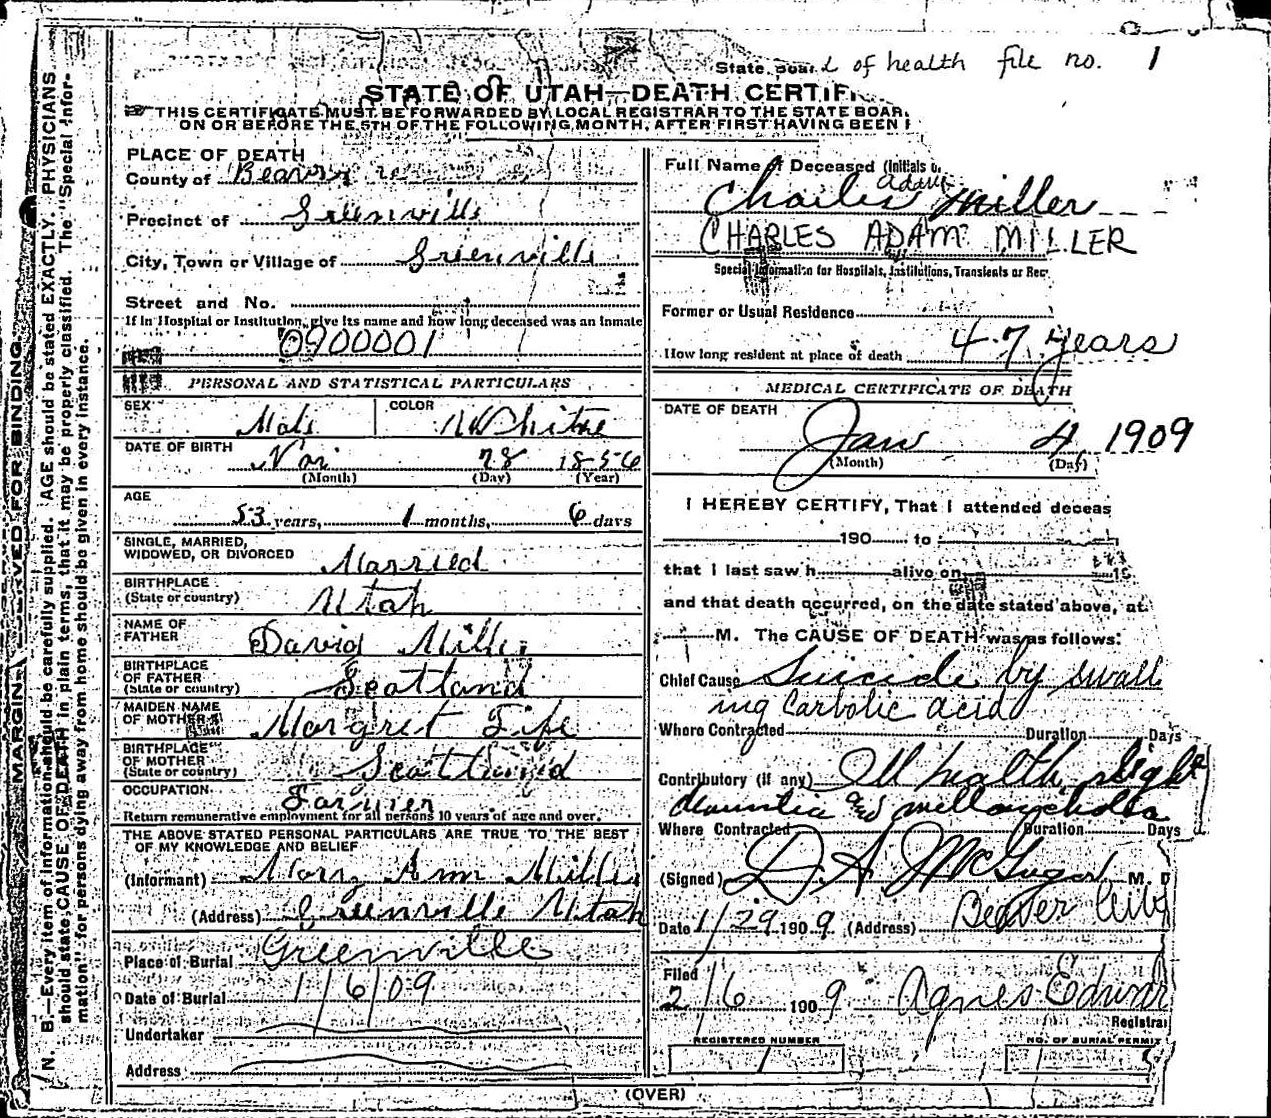 State Board of health file no. 1
STATE OF UTAH—DEATH CERTIF
THIS CERTIFICATE MUST BE FORWARDED BY LOCAL REGISTRAR TO THE STATE BOAR
ON OR BEFORE THE 5TH OF THE FOLLOWING MONTH, AFTER FIRST HAVING BEEN
MARGIN RESERVED FOR BINDING.
N. B.—Every item of information should be carefully supplied. AGE should be stated EXACTLY. PHYSICIANS
should state CAUSE OF DEATH in plain terms, that it may be properly classified. The "Special Infor-
mation" for persons dying away from home should be given in every instance.
PLACE OF DEATH
County of Beaver
Precinct of Greenville
City, Town or Village of Greenville
Street and No.
If in Hospital or Institution, give its name and how long deceased was an inmate
0900001
PERSONAL AND STATISTICAL PARTICULARS
SEX Male COLOR White
DATE OF BIRTH Nov 28 1856
(Month) (Day) (Year)
AGE
53 years, 1 months, 6 days
SINGLE, MARRIED,
WIDOWED, OR DIVORCED Married
BIRTHPLACE
(State or country) Utah
NAME OF
FATHER David Miller
BIRTHPLACE
OF FATHER
(State or country) Scotland
MAIDEN NAME
OF MOTHER Margret Fife
BIRTHPLACE
OF MOTHER
(State or country) Scottland
OCCUPATION
Farmer
Return remunerative employment for all persons 10 years of age and over.
THE ABOVE STATED PERSONAL PARTICULARS ARE TRUE TO THE BEST
OF MY KNOWLEDGE AND BELIEF
(Informant) Ann Miller
(Address) Greenville Utah
Place of Burial Greenville
Date of Burial 1/6/09
Undertaker
Address
Full Name of Deceased (Initials
Charles Adam Miller
CHARLES ADAM MILLER
Special Information for Hospitals, Institutions, Transients or Rec
Former or Usual Residence
How long resident at place of death 47 years
MEDICAL CERTIFICATE OF DEATH
DATE OF DEATH
Jan 4 1909
(Month) (Day)
I HEREBY CERTIFY, That I attended deceas
190 to
that I last saw h alive on 19
and that death occurred, on the date stated above, at
M. The CAUSE OF DEATH was as follows:
Chief Cause Suicide by swall
ing Carbolic acid
Where Contracted Duration Days
Contributory (if any) Ill health slight
dementia and
Where Contracted Duration Days
(Signed) D. A. McGregor M. D
Date 1/29 1909. (Address) Beaver City
Filed
2/6 1909 Agnes Edwar
Registrar
REGISTERED NUMBER
1
NO. OF BURIAL PERMIT
(OVER)